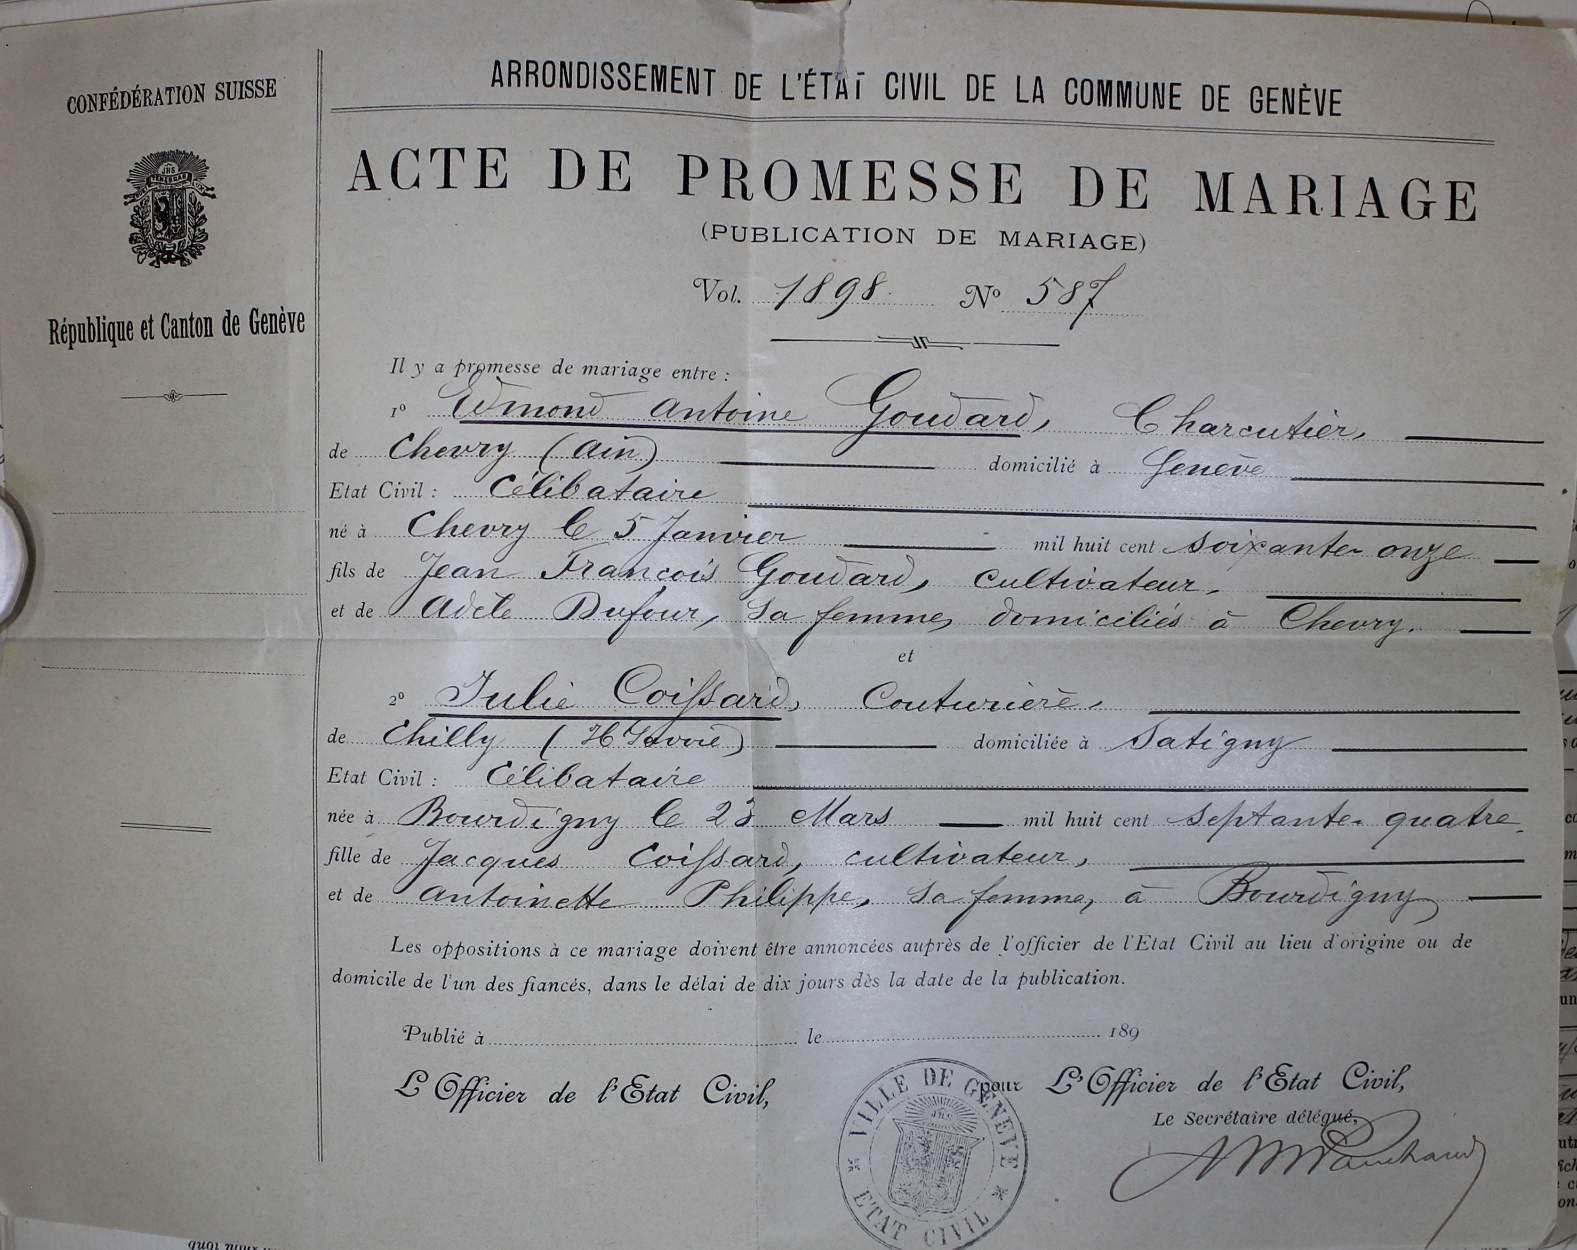 CONFÉDÉRATION SUISSE
JHS
République et Canton de Genève
ARRONDISSEMENT DE L'ÉTAT CIVIL DE LA COMMUNE DE GENÈVE
ACTE DE PROMESSE DE MARIAGE
(PUBLICATION DE MARIAGE)
Vol. 1898. No 587
Il y a promesse de mariage entre :
1o Edmond Antoine Goudard, Charcutier,
de Chevry (Ain) domicilié à Genève
Etat Civil : Célibataire
né à Chevry le 5 Janvier mil huit cent soixante-onze
fils de Jean François Goudard, cultivateur,
et de Adèle Dufour, sa femme, domiciliés à Chevry.
et
2o Julie Coissard, Couturière,
de Chilly (Hte Savoie) domiciliée à Satigny
Etat Civil : Célibataire
née à Bourdigny le 23 Mars mil huit cent septante-quatre
fille de Jacques Coissard, cultivateur,
et de Antoinette Philippe, sa femme, à Bourdigny
Les oppositions à ce mariage doivent être annoncées auprès de l'officier de l'Etat Civil au lieu d'origine ou de
domicile de l'un des fiancés, dans le délai de dix jours dès la date de la publication.
Publié à le 189
L'Officier de l'Etat Civil,
pour L'Officier de l'Etat Civil,
Le Secrétaire délégué,
VILLE DE GENÈVE
ETAT CIVIL